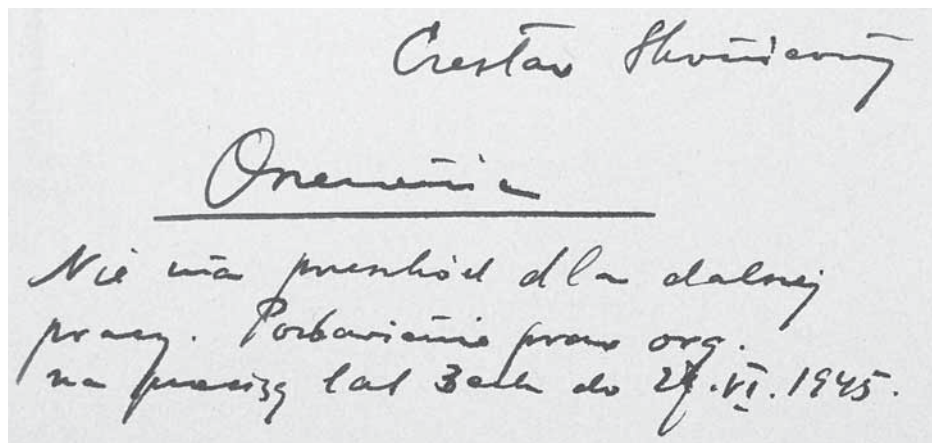 Czesław
Orzeczenie
Nie ma przeszkód dla dalszej
pracy. Pozbawienie praw org.
na przeciąg lat 3ech do VI.1945.